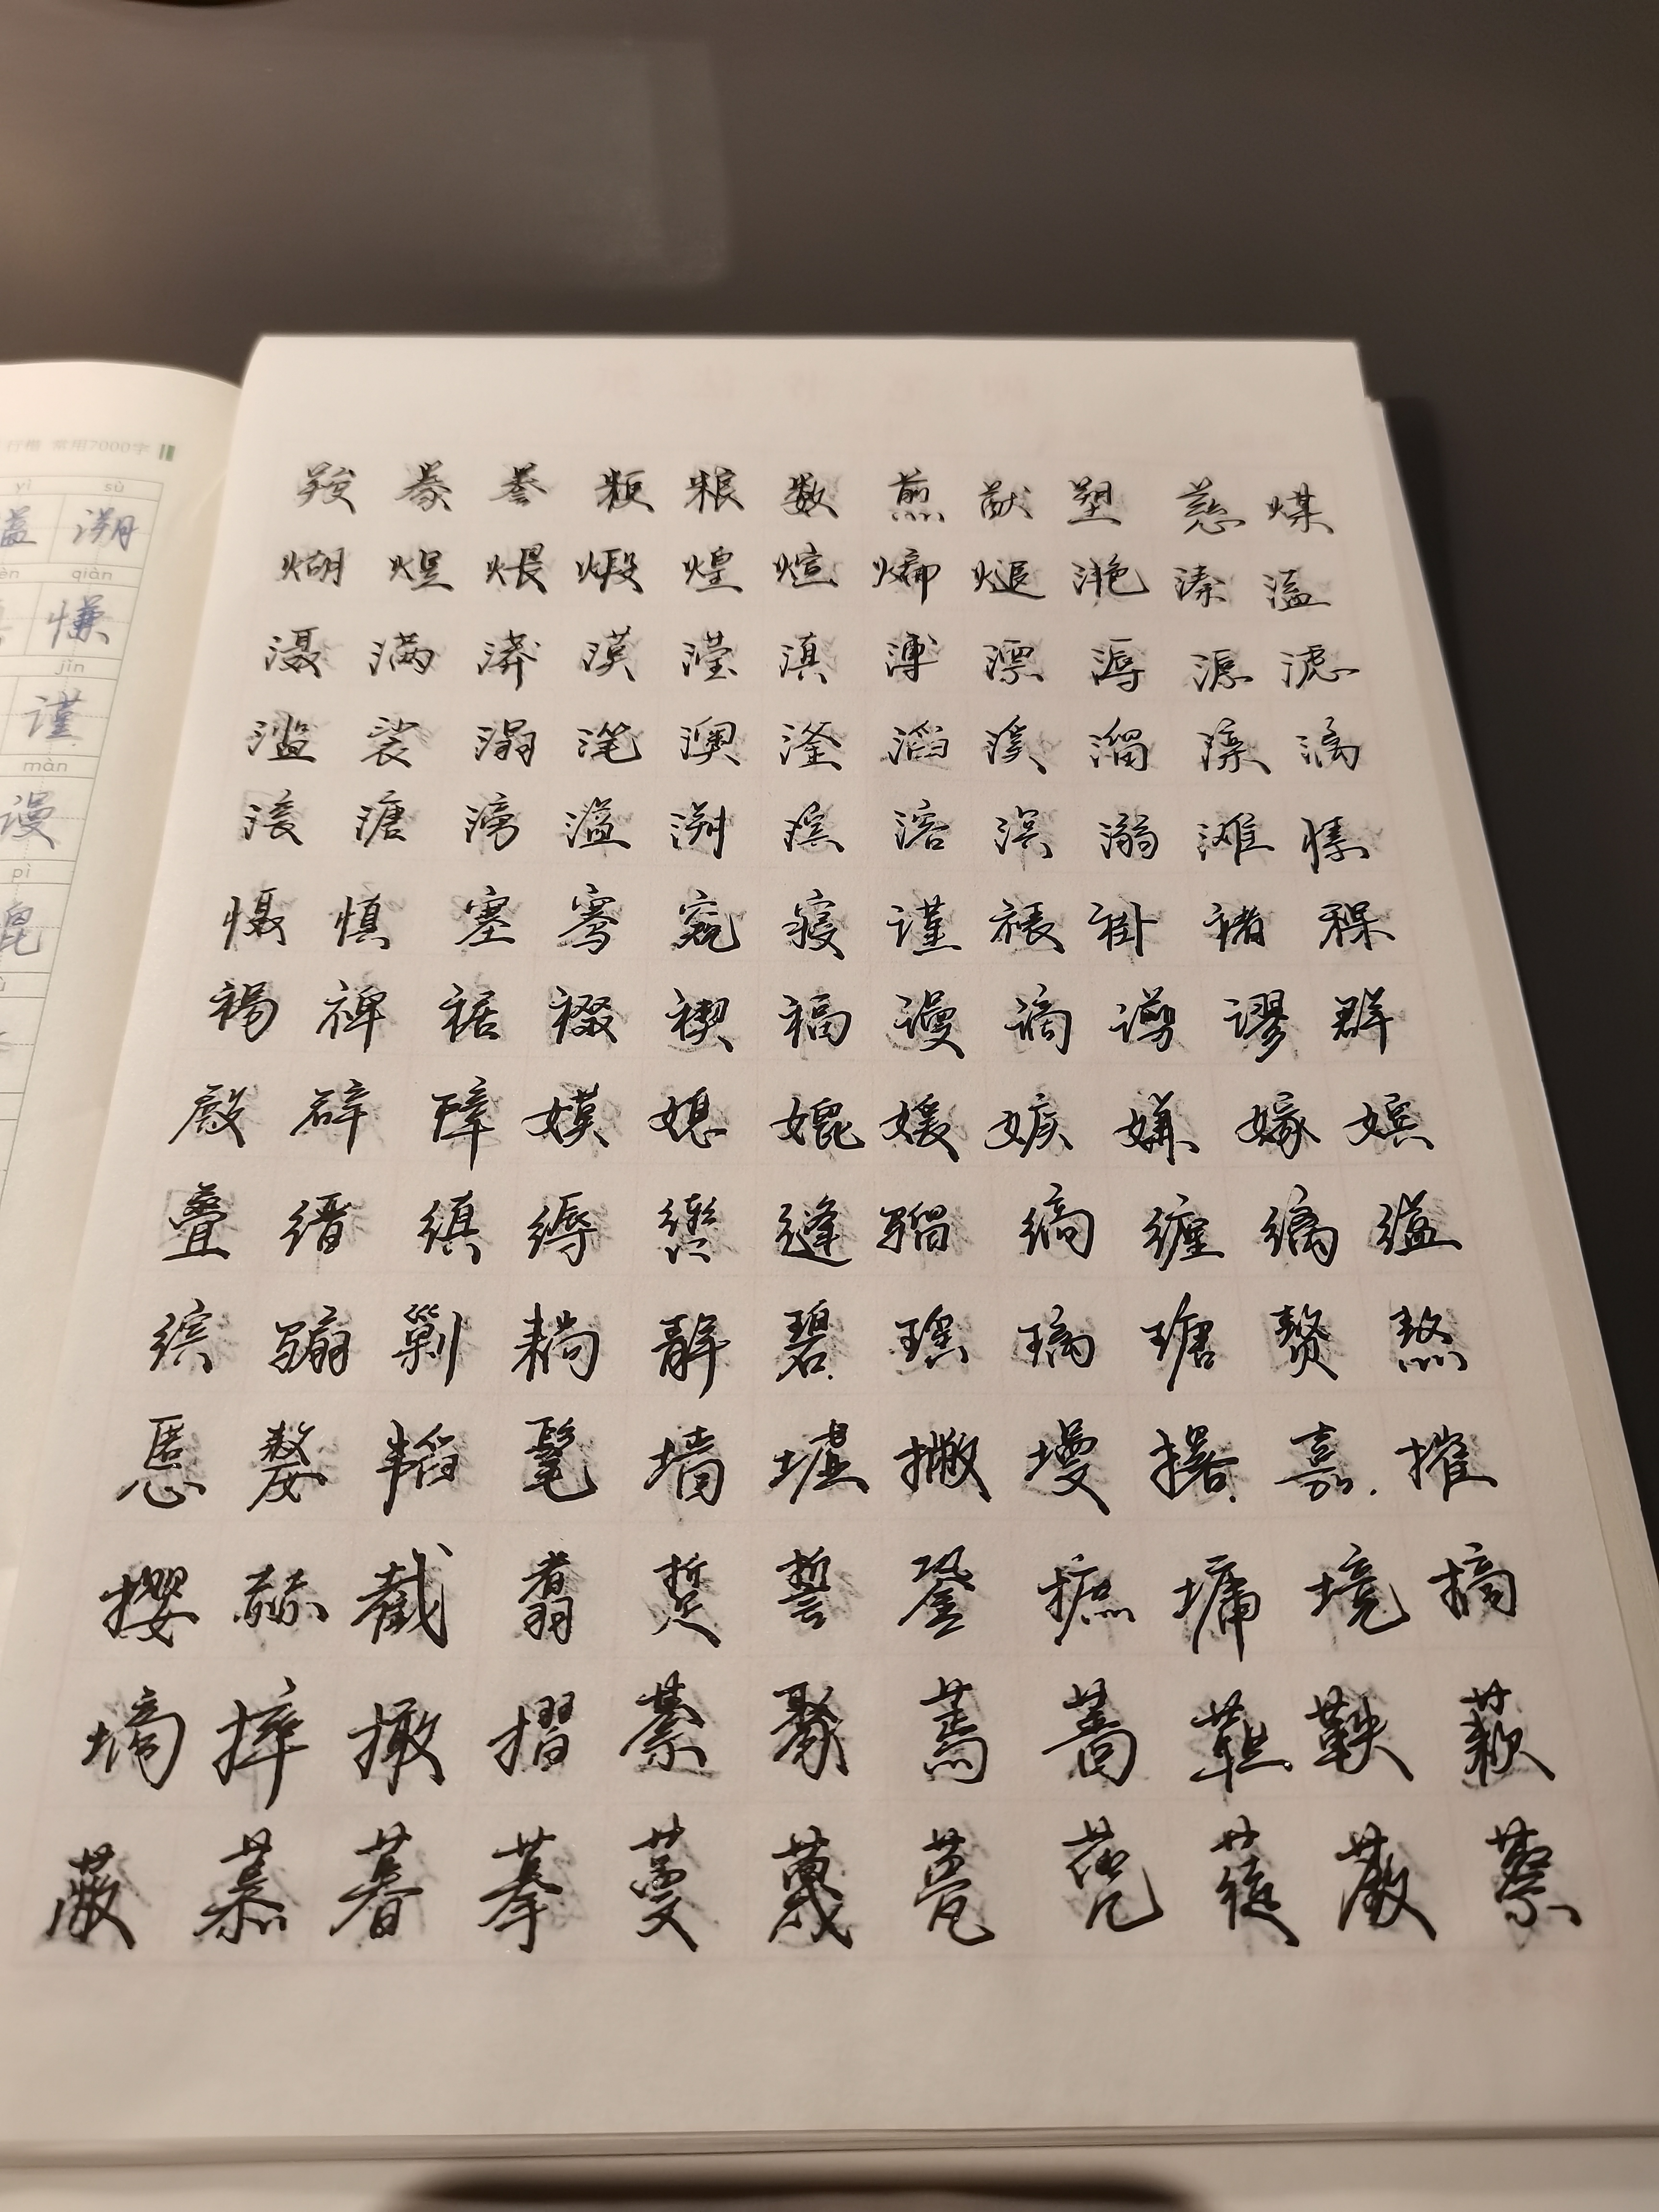 行楷 常用7000字
yì sù
溢 溯
qiàn
慊
jǐn
谨
màn
谩
pì
羧 豢 誊 粳 粮 数 煎 猷 塑 慈 煤
煳 煜 煨 煅 煌 煊 煸 煺 滟 溱 溘
滠 满 漭 漠 滢 滇 溥 漂 溽 源 滤
滥 裟 溻 滗 澳 滏 滔 溪 溜 滦 漓
滚 溏 滂 溢 溯 滨 溶 溟 溺 滩 愫
慑 慎 塞 骞 窥 寝 谨 裱 褂 褚 裸
裼 裨 裾 裰 禊 福 谩 谪 谫 谬 群
殿 辟 障 嫫 媳 媲 媛 嫉 嫌 嫁 嫔
叠 缙 缜 缛 辔 缝 骝 缟 缠 缡 缢
缤 骟 剿 耥 觏 碧 瑶 璃 瑭 赘 熬
慝 嫠 韬 髦 墙 墟 撇 墁 撂 嘉 摧
撄 赫 截 翥 踅 誓 銎 摭 墉 境 摘
墒 摔 撖 摺 綦 聚 蔫 蔷 靼 鞅 蔌
蔽 慕 暮 摹 蔓 蔑 甍 蔸 蓰 蔹 蔡